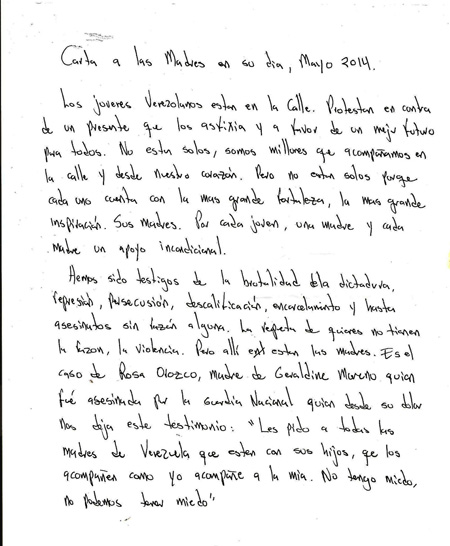 Carta a las Madres en su dia, Mayo 2014.
Los jovenes Venezolanos estan en la Calle. Protestan en contra
de un presente que los asfixia y a favor de un mejor futuro
para todos. No estan solos, somos millones que acompañamos en
la calle y desde nuestro corazón. Pero no estan solos porque
cada uno cuenta con la mas grande fortaleza, la mas grande
inspiración. Sus Madres. Por cada joven, una madre y cada
Madre un apoyo incondicional.
Hemos sido testigos de la brutalidad dela dictadura,
represion, persecusión, descalificación, encarcelamiento y hasta
asesinatos sin razón alguna. La repeta de quienes no tienen
la razon, la violencia. Pero allí estan las madres. Es el
caso de Rosa Orozco, madre de Geraldine Moreno quien
fué asesinada por la Guardia Nacional quien desde su dolor
nos deja este testimonio: "Les pido a todas las
madres de Venezuela que esten con sus hijos, qe los
acompañen como yo acompañe a la mia. No tengo miedo,
no podemos tener miedo"